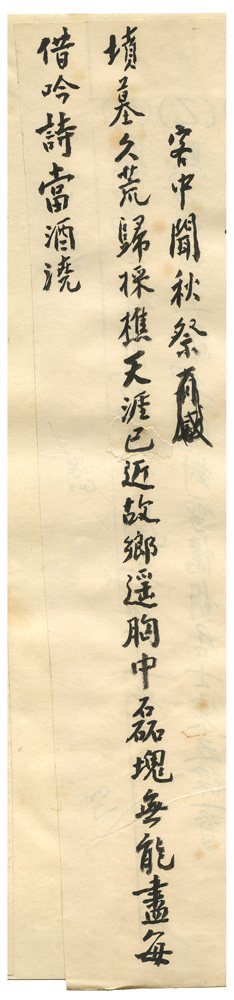 客中聞秋祭有感
墳墓久荒歸採樵天涯已近故鄉遥胸中磊塊無能盡每
借吟詩當酒澆